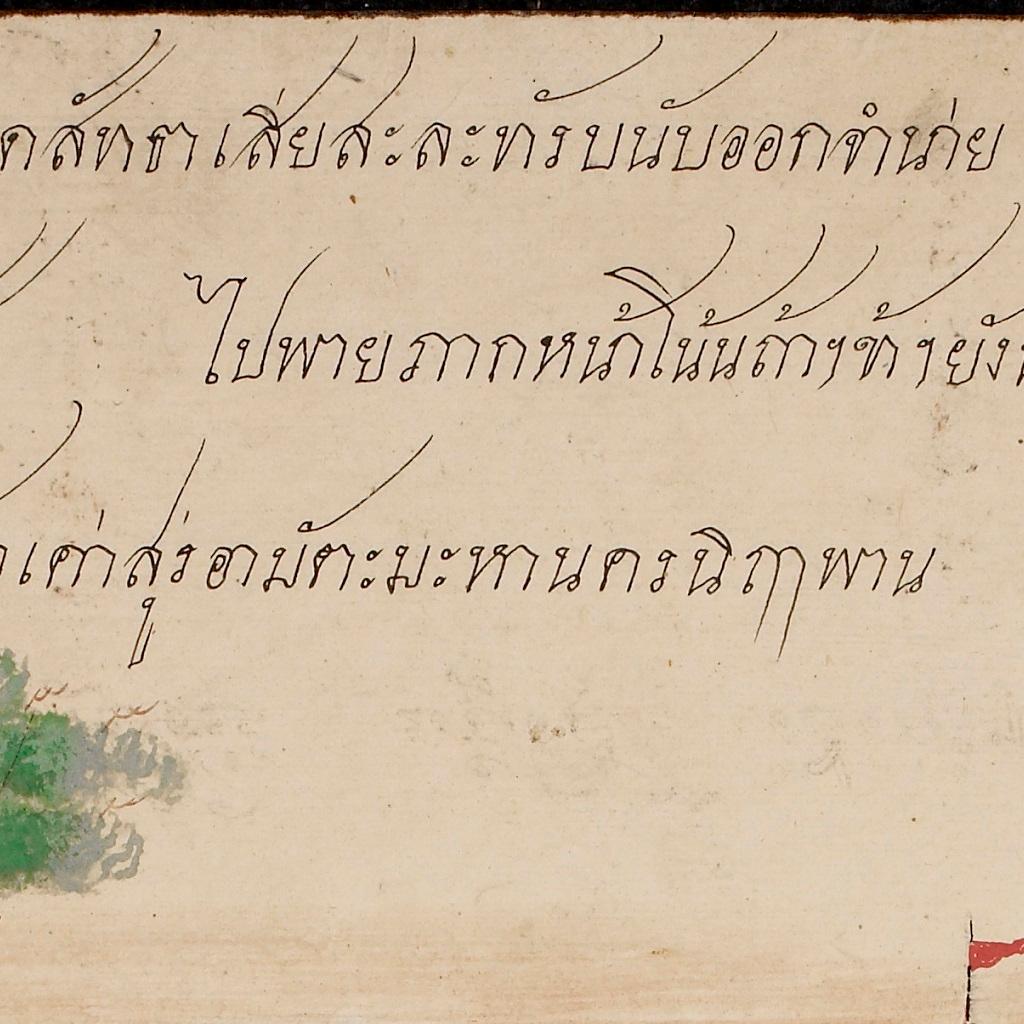 ดสัทธาเสี่ยสะละทรับนับออกจำน่าย
ไปพายภากหน้าโน้นถ้าฯข้าฯยัง
เค่าสู่รอามัตะมะหานครนิฤาพาน